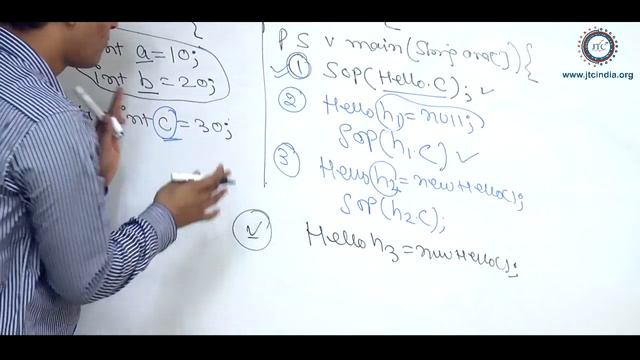 int a=10;
int b=20;
int c=30;
{
P S v main(String args[]){
1 SOP(Hello.C);
2 Hello h1=null;
SOP(h1.C)
3 Hello h2=new Hello();
SOP(h2.C);
Hello h3=new Hello();
JTC
www.jtcindia.org